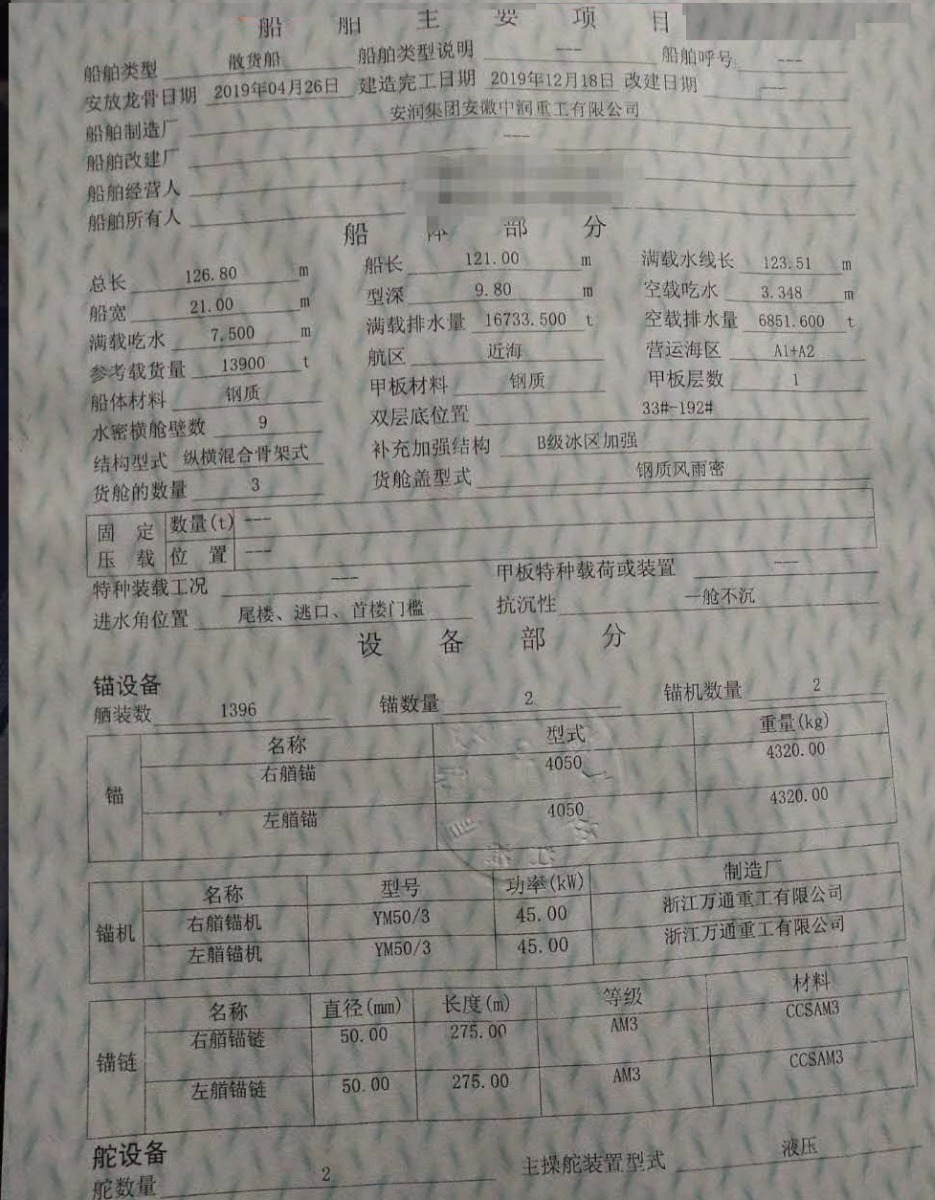 船舶主要项目
船舶类型 散货船 船舶类型说明 --- 船舶呼号 ---
安放龙骨日期 2019年04月26日 建造完工日期 2019年12月18日 改建日期 ---
船舶制造厂 安润集团安徽中润重工有限公司
船舶改建厂 ---
船舶经营人
船舶所有人
船体部分
总长 126.80 m 船长 121.00 m 满载水线长 123.51 m
船宽 21.00 m 型深 9.80 m 空载吃水 3.348 m
满载吃水 7.500 m 满载排水量 16733.500 t 空载排水量 6851.600 t
参考载货量 13900 t 航区 近海 营运海区 A1+A2
船体材料 钢质 甲板材料 钢质 甲板层数 1
水密横舱壁数 9 双层底位置 33#-192#
结构型式 纵横混合骨架式 补充加强结构 B级冰区加强
货舱的数量 3 货舱盖型式 钢质风雨密
固定压载 数量(t) ---
位置 ---
特种装载工况 --- 甲板特种载荷或装置 ---
进水角位置 尾楼、逃口、首楼门槛 抗沉性 一舱不沉
设备部分
锚设备
舾装数 1396 锚数量 2 锚机数量 2
锚 名称 型式 重量(kg)
右艏锚 4050 4320.00
左艏锚 4050 4320.00
锚机 名称 型号 功率(kW) 制造厂
右艏锚机 YM50/3 45.00 浙江万通重工有限公司
左艏锚机 YM50/3 45.00 浙江万通重工有限公司
锚链 名称 直径(mm) 长度(m) 等级 材料
右艏锚链 50.00 275.00 AM3 CCSAM3
左艏锚链 50.00 275.00 AM3 CCSAM3
舵设备
舵数量 2 主操舵装置型式 液压